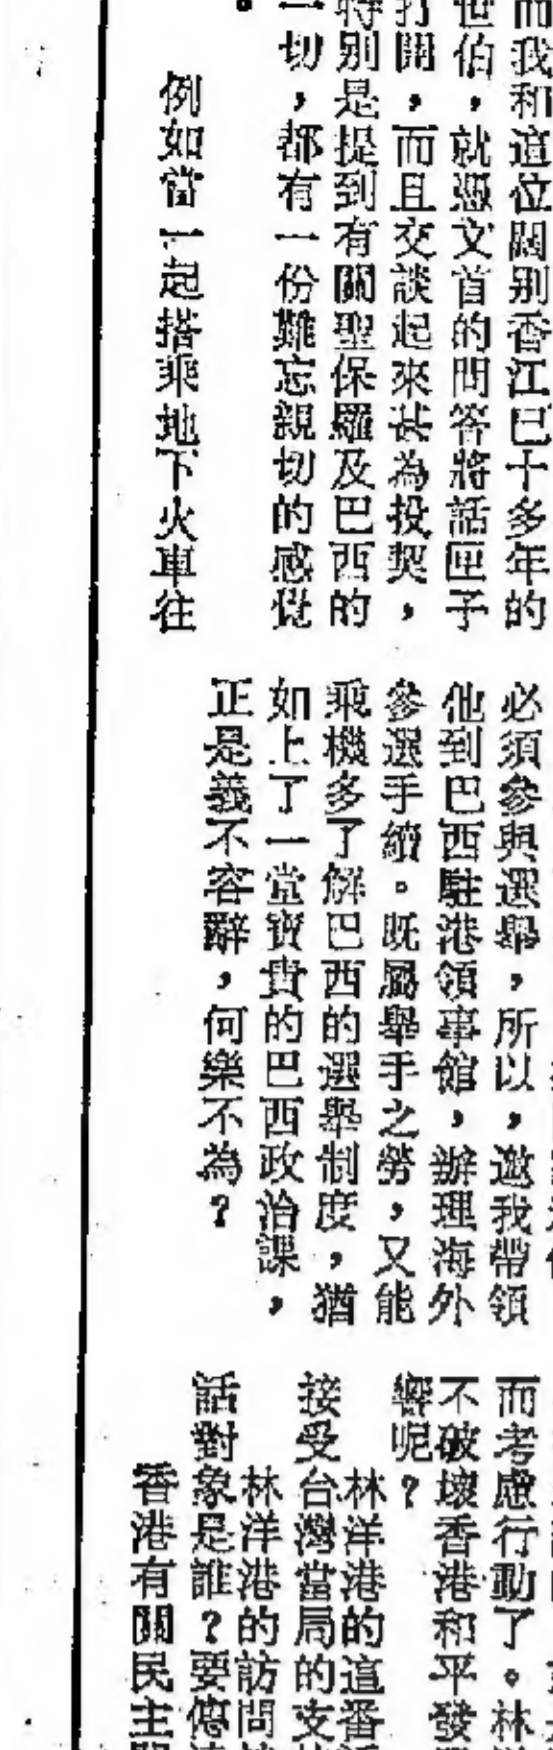 而我和這位闊别香江已十多年的
世伯，就憑文首的問答將話匣子
打開，而且交談起來甚為投契，
特别是提到有關聖保羅及巴西的
一切，都有一份難忘親切的感覺
。
例如當一起搭乘地下火車往
必須參與選舉，所以，邀我帶領
他到巴西駐港領事館，辦理海外
參選手續。既屬舉手之勞，又能
乘機多了解巴西的選舉制度，猶
如上了一堂寶貴的巴西政治課，
正是義不容辭，何樂不為？
而考慮行動了。林
不破壞香港和平發
響呢？
林洋港的這番
接受台灣當局的支
林洋港的訪問
話對象是誰？要傳
香港有關民主